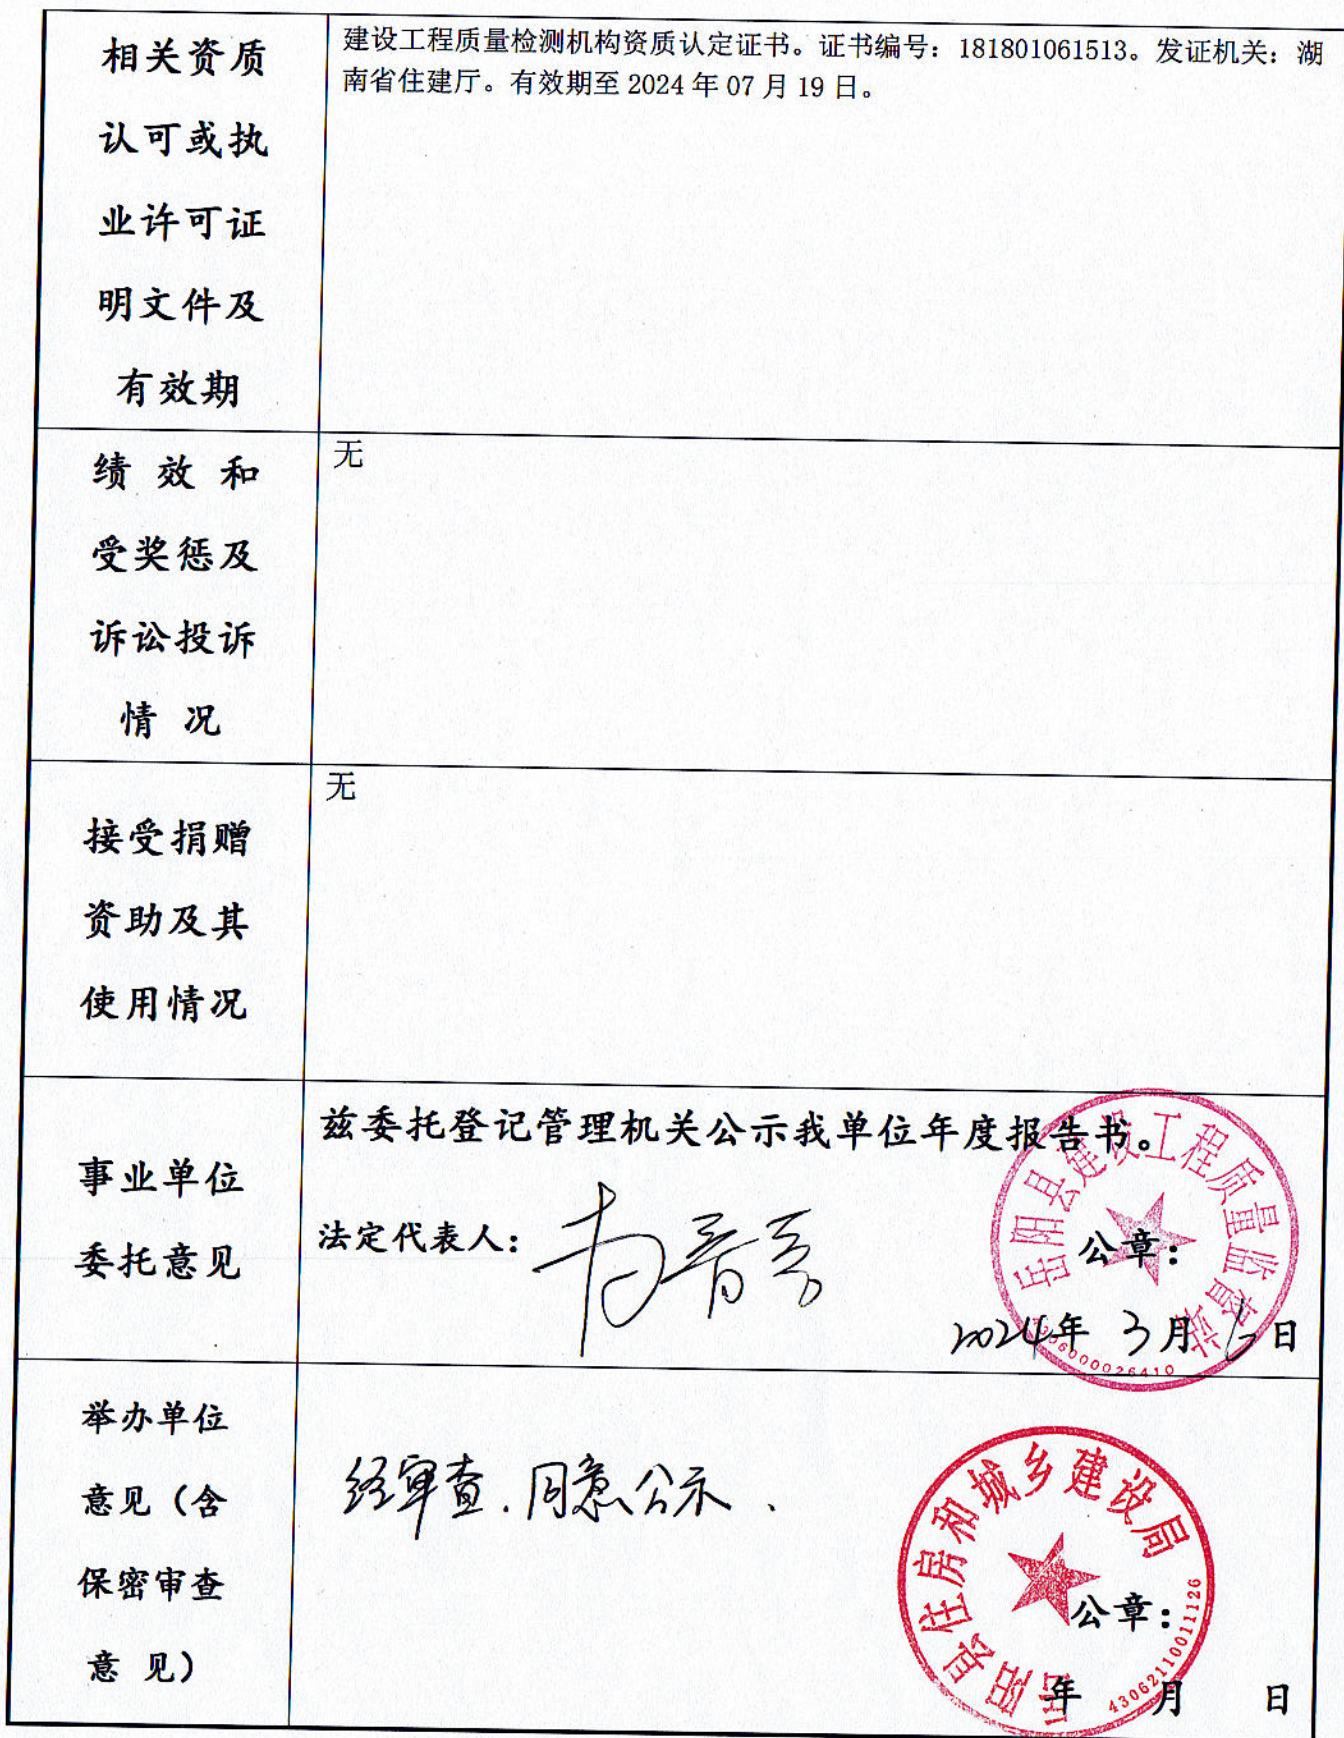 相关资质
认可或执
业许可证
明文件及
有效期
建设工程质量检测机构资质认定证书。证书编号：181801061513。发证机关：湖
南省住建厅。有效期至 2024 年 07 月 19 日。
绩 效 和
受奖惩及
诉讼投诉
情 况
无
接受捐赠
资助及其
使用情况
无
事业单位
委托意见
兹委托登记管理机关公示我单位年度报告书。
法定代表人：
公章：
2024年 3月 日
岳阳县建设工程质量监督站
4306000026410
举办单位
意见（含
保密审查
意 见）
经审查.同意公示、
公章：
年 月 日
岳阳县住房和城乡建设局
43062110011126